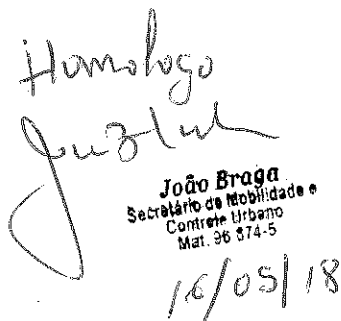 Homologo
João Braga
Secretário de Mobilidade e
Controle Urbano
Mat. 96 874-5
16/05/18